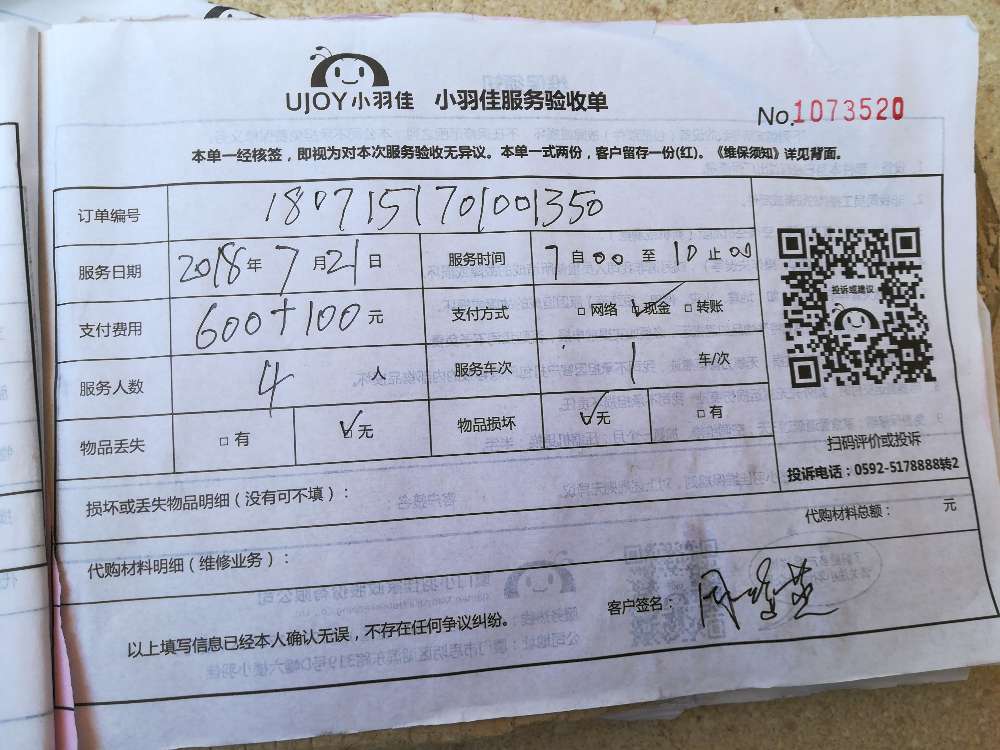 UJOY小羽佳 小羽佳服务验收单
No.1073520
本单一经核签，即视为对本次服务验收无异议。本单一式两份，客户留存一份(红)。《维保须知》详见背面。
订单编号 1807151701001350
服务日期 2018年7月21日 服务时间 7自00至10止00
支付费用 600+100元 支付方式 □网络 ☑现金 □转账
服务人数 4人 服务车次 1车/次
物品丢失 □有 ☑无 物品损坏 ☑无 □有
投诉或建议
扫码评价或投诉
投诉电话：0592-5178888转2
损坏或丢失物品明细（没有可不填）：
代购材料总额： 元
代购材料明细（维修业务）：
客户签名：
以上填写信息已经本人确认无误，不存在任何争议纠纷。